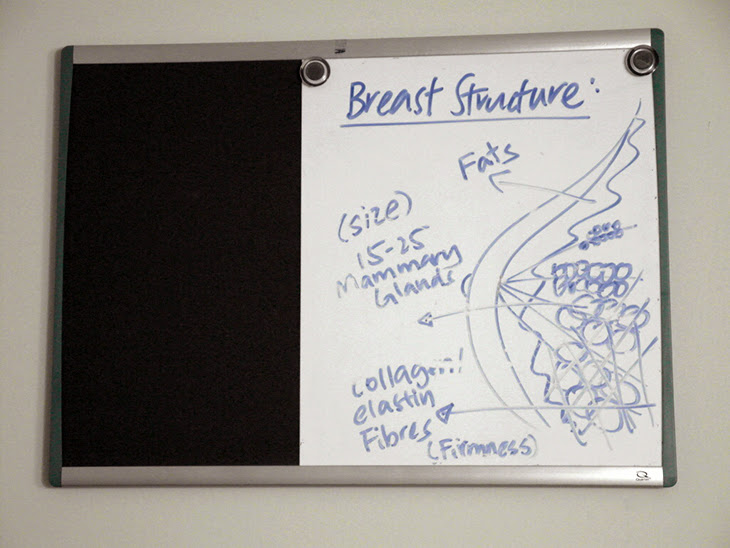 Breast Structure:
Fats
(size)
15-25
Mammary
Glands
elastin
Fibres
(Firmness)